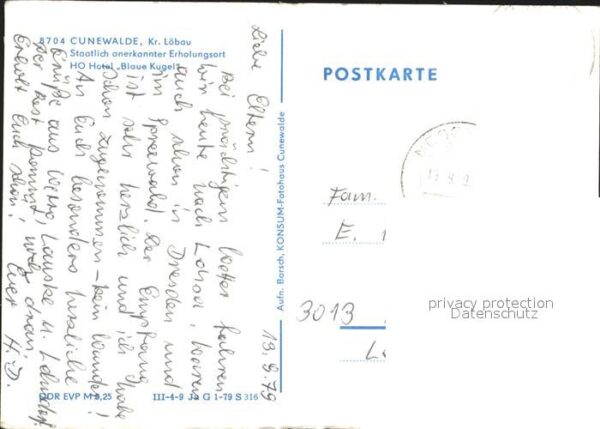 8704 CUNEWALDE, Kr. Löbau
Staatlich anerkannter Erholungsort
HO Hotel „Blaue Kugel"
13.8.79
Liebe Eltern!
Bei prächtigem Wetter fahren
wir heute nach Löbau, waren
auch schon in Dresden und
im Spreewald. Der Empfang
ist sehr herzlich und ich habe
schon zugenommen - kein Wunder!
An Euch besonders herzliche
Grüße aus
Der Rest kommt noch dran.
Erholt Euch schön! Euer H.D.
DDR EVP M 0,25
III-4-9 Jo G 1-79 S 316
Aufn. Borsch, KONSUM-Fotohaus Cunewalde
POSTKARTE
Fam.
E.
3013
privacy protection
Datenschutz